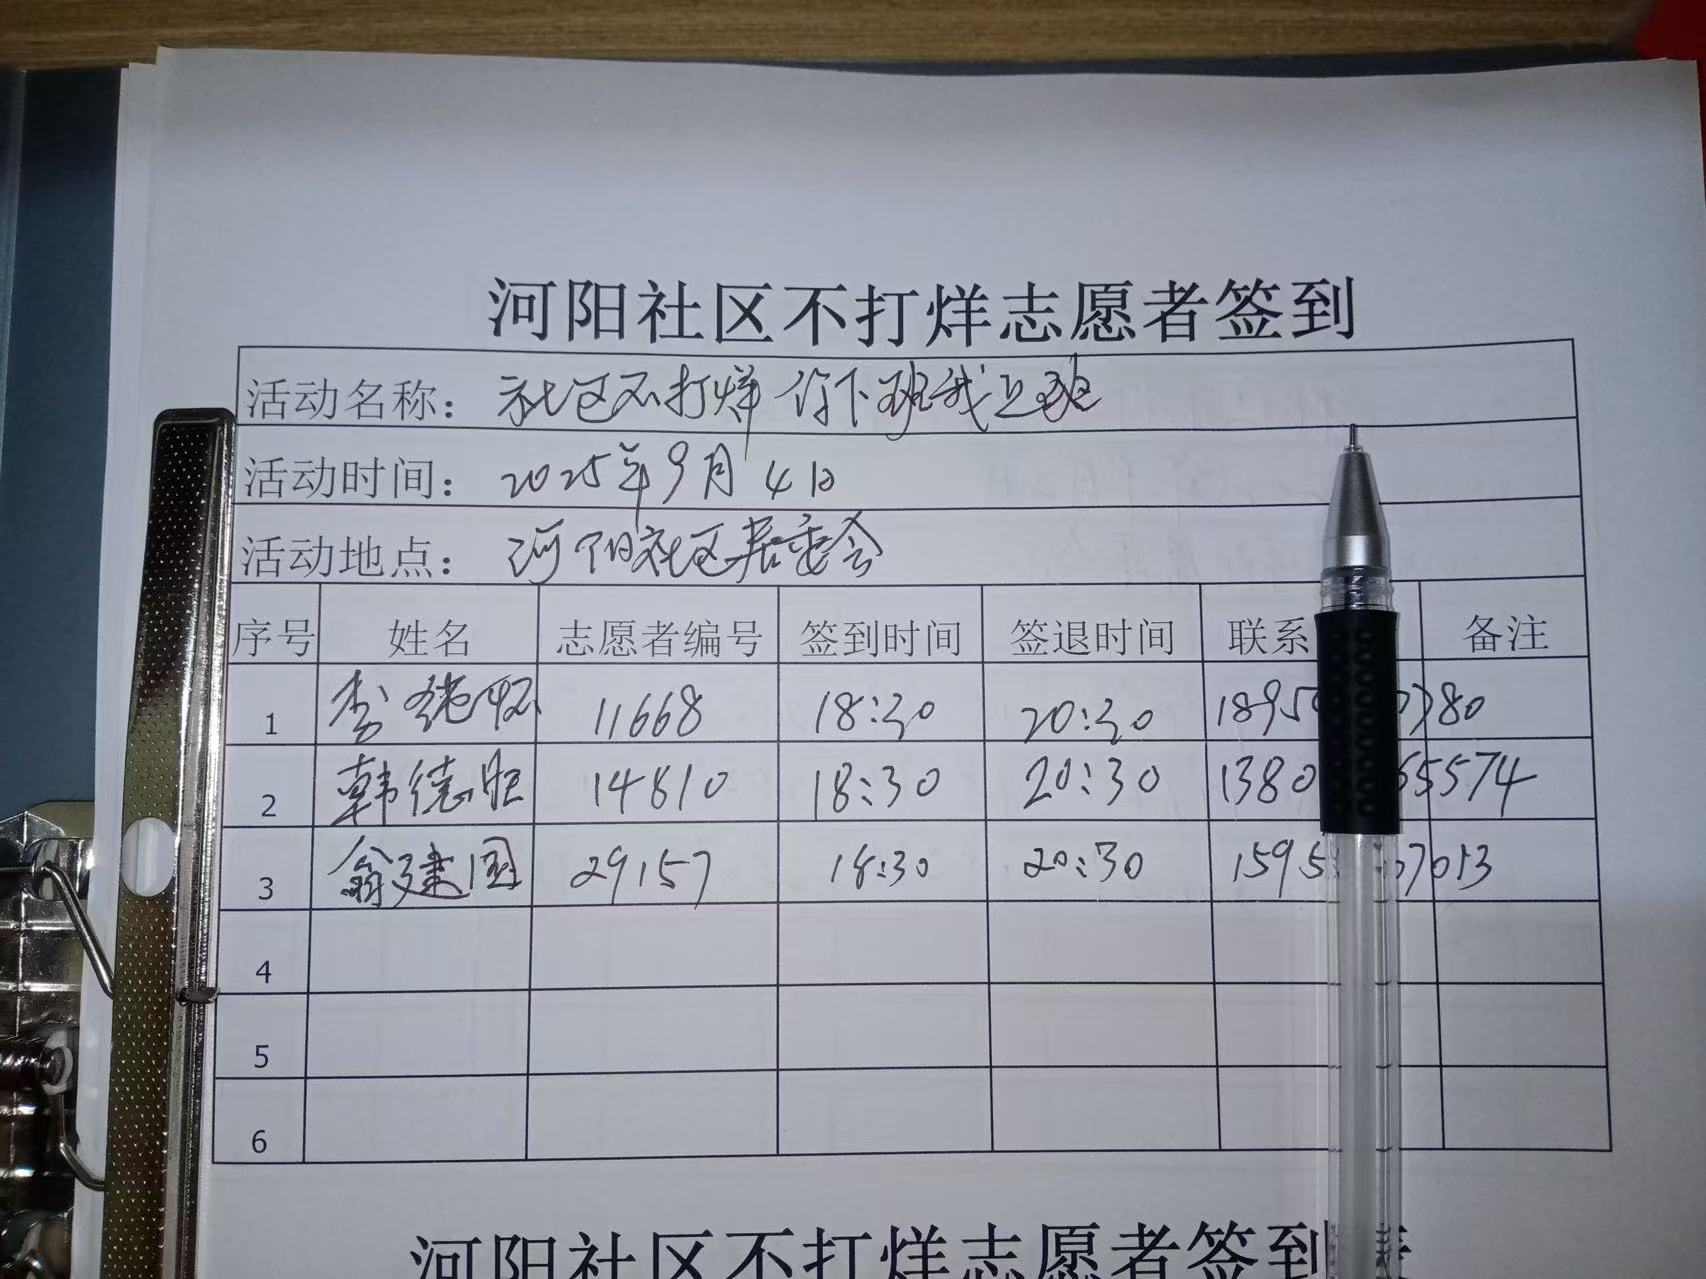 河阳社区不打烊志愿者签到
活动名称：社区不打烊 你下班我上班
活动时间：2025年9月4日
活动地点：河阳社区居委会
序号 姓名 志愿者编号 签到时间 签退时间 联系 备注
1 李 11668 18:30 20:30 1895 780
2 韩德胜 14810 18:30 20:30 1380 65574
3 翁建国 29157 18:30 20:30 1595 7013
4
5
6
河阳社区不打烊志愿者签到表